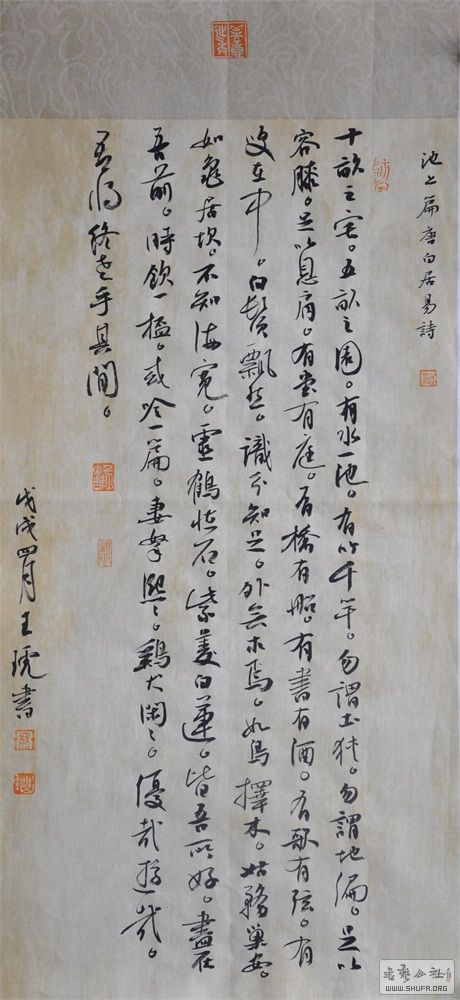 池上篇唐白居易詩
十畝之宅。五畝之園。有水一池。有竹千竿。勿謂土狭。勿謂地偏。足以
容膝。足以息肩。有堂有庭。有橋有船。有書有酒。有歌有弦。有
叟在中。白鬚飄然。識分知足。外無求焉。如鳥擇木。姑務巢安。
如龜居坎。不知海寬。靈鶴怪石。紫菱白蓮。皆吾所好。盡在
吾前。時飲一。或吟一篇。妻孥熙〻。鷄犬閑〻。優哉游哉。
吾將終老乎其間。
戊戌四月王琥書
書藝公社
WWW.SHUFA.ORG